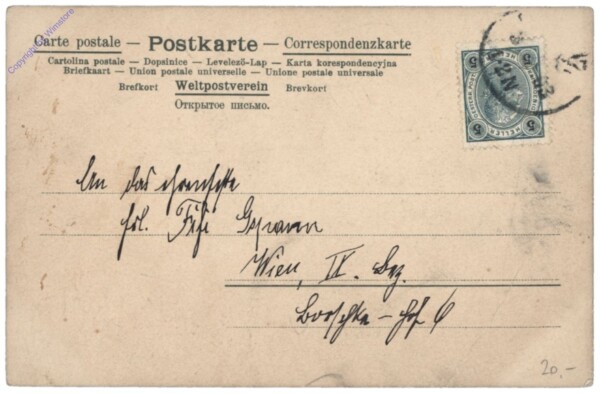 Carte postale — Postkarte — Correspondenzkarte
Cartolina postale — Dopisnice — Levelező-Lap — Karta korespondencyjna
Briefkaart — Union postale universelle — Unione postale universale
Brefkort Weltpostverein Brevkort
Открытое письмо.
5 5
5 HELLER 5
An das
Frl. Fifi
Wien, IX. Bez.
hof 6
20.-